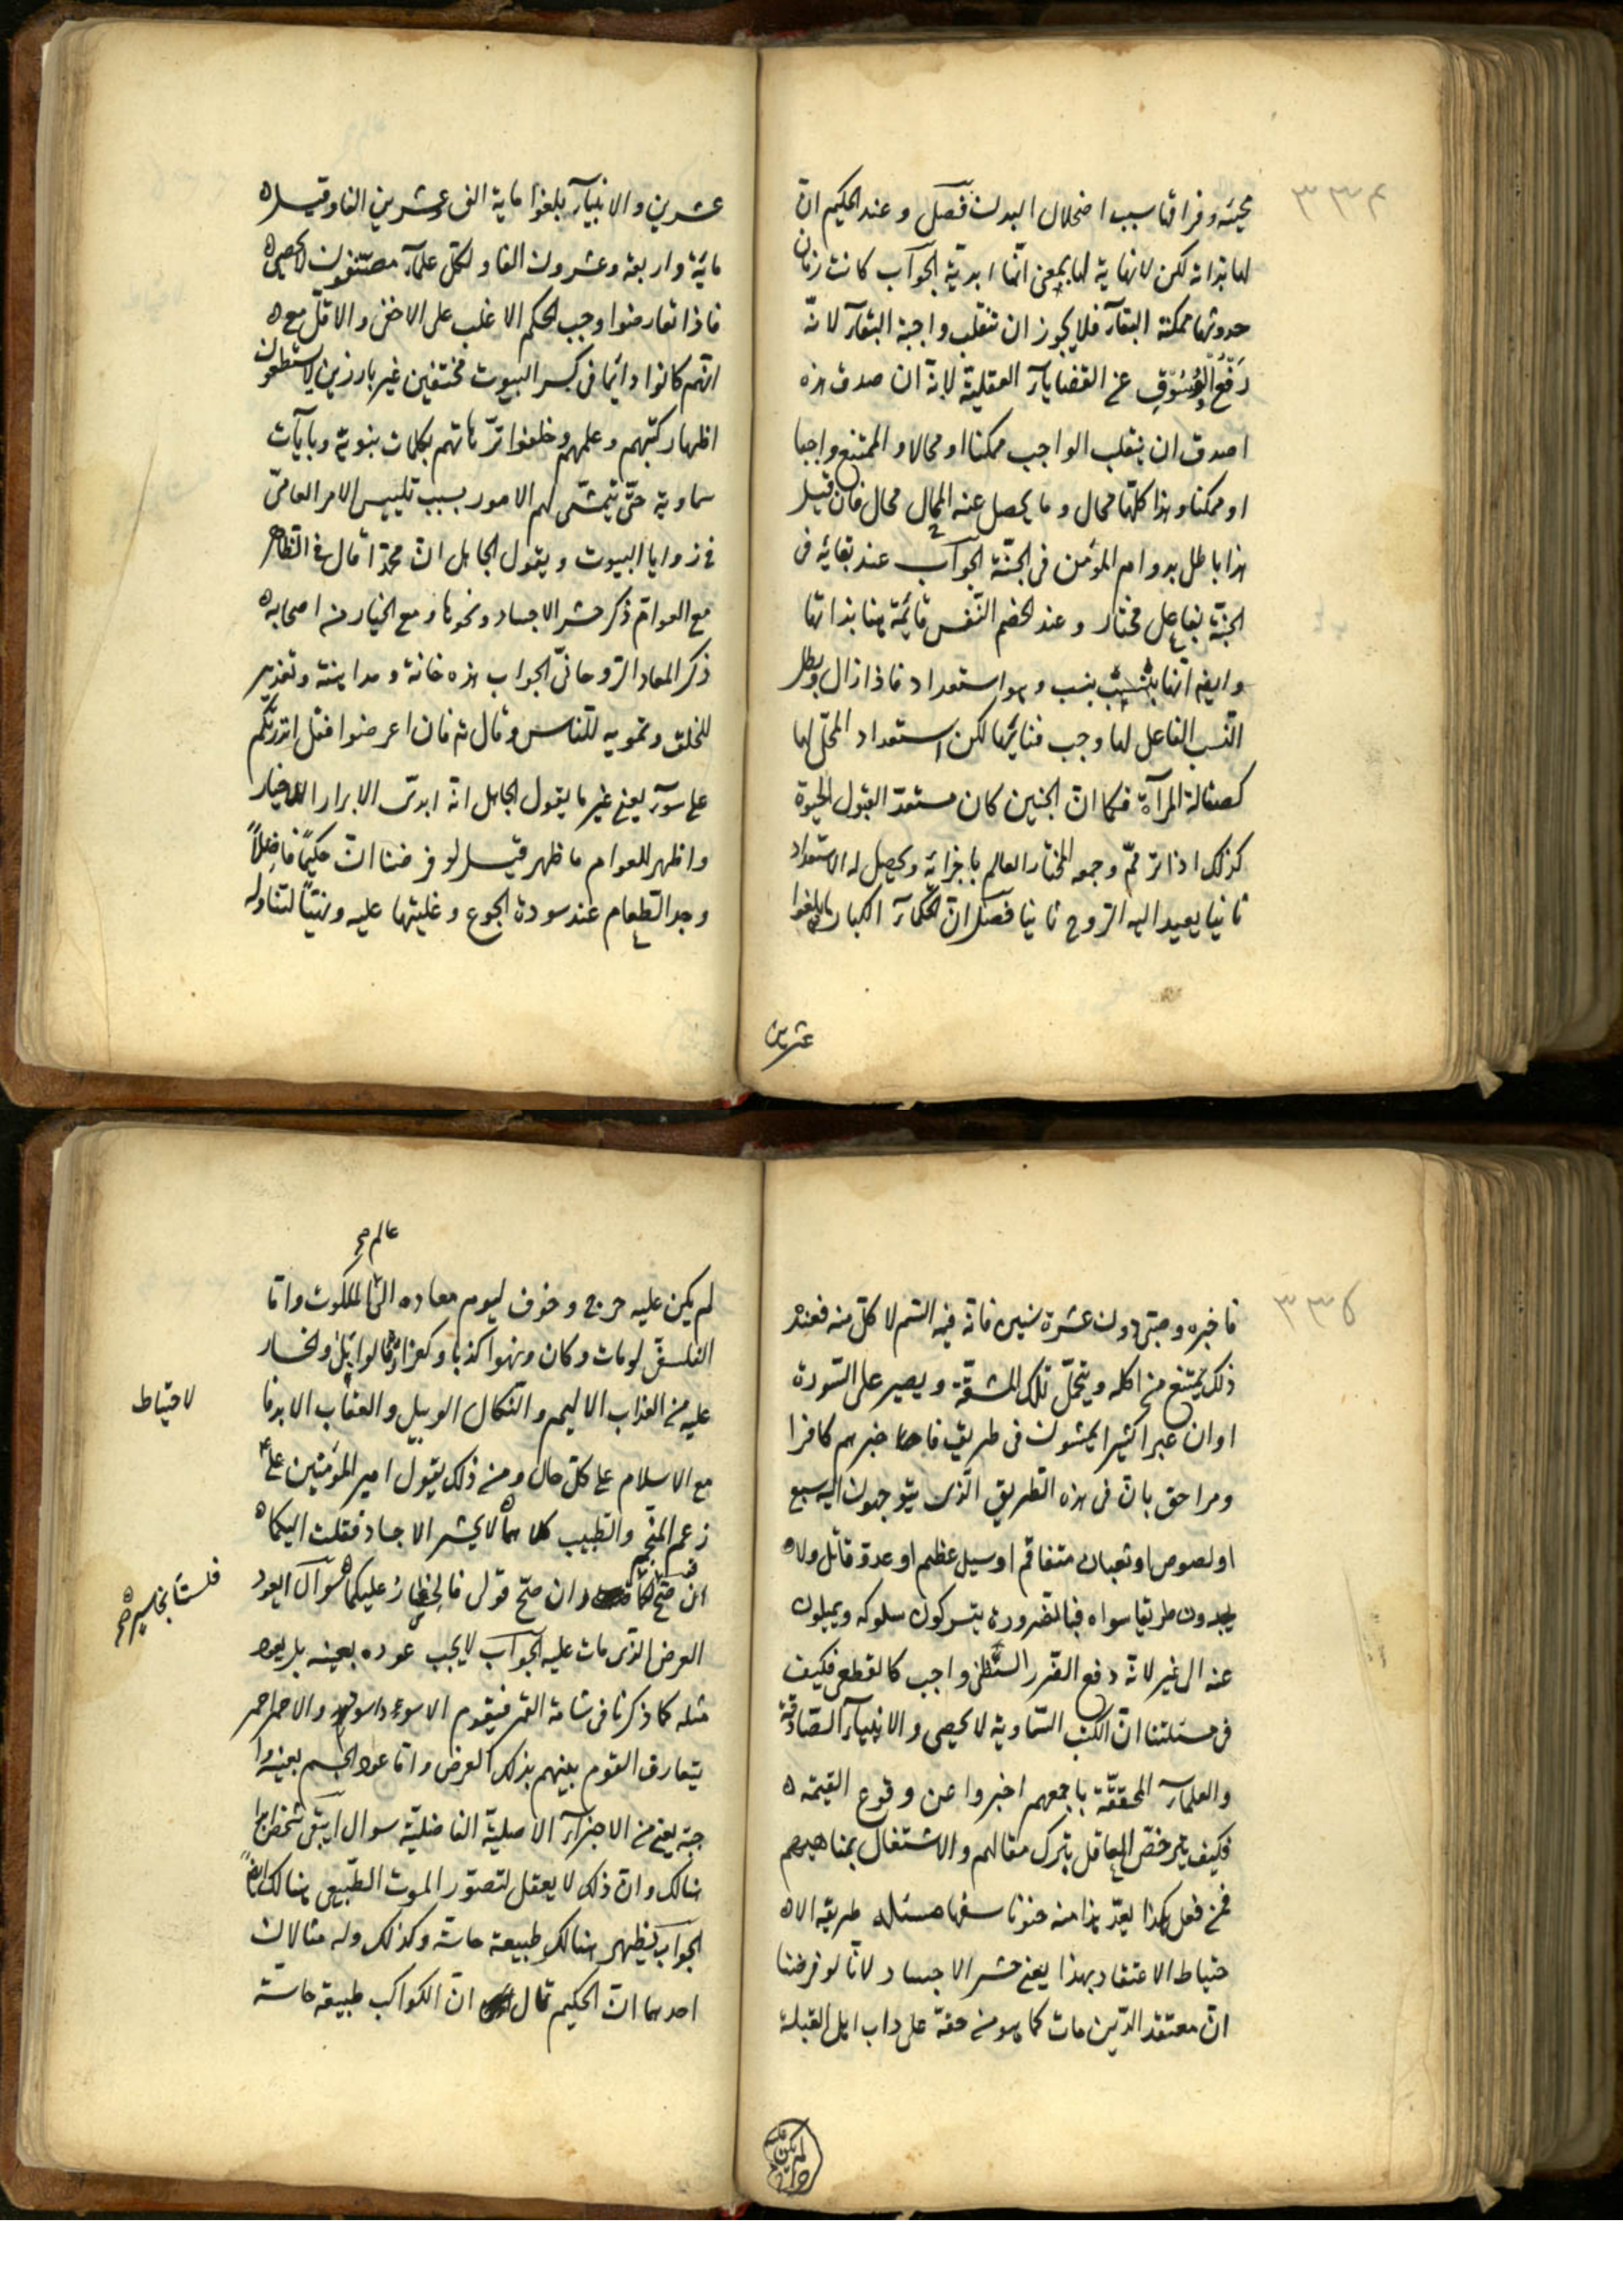 ٣٣٤
محيئه وفراقها سبب اضمحلال البدن فصل و عند الحكيم انّ
لها بداية لكن لا نهاية لها بمعنى انّها ابدية الجواب كانت زمان
حدوثها ممكنة البقآء فلا يجوز ان تنقلب واجبة البقآء لانّه
رَفع الوُثوقِ عن القضايآء العقلية لانه ان صدق هذه
اصدق ان ينقلب الواجب ممكنا او محالا و الممتنع واجبا
او ممكنا و هذا كلّها محال و ما يحصل عنه المحال محال فان قيل
هذا باطل بدوام المؤمن فى الجنّة الجواب عند بقائه فى
الجنّة بفاعل مختار و عند الخصم النّفس قائمة هنا بذاتها
وايضا انّها بنسب وهو استعداد فاذا زال وبطل
النّسب الفاعل لها وجب فنائها لكن استعداد المحلّ لها
كصقالة المرآة فكما انّ الجنين كان مستعدّ القبول الحيوة
كذلك اذا ترمّم وجمعه المختار العالم باجزائه ويحصل له الاستعداد
ثانيا يعيد اليه الروح ثانيا فصل انّ الحكمآء الكبار مابلغوا
عشرين
عشرين والانبيآء بلغوا ماية الف وعشرين الفا وقيل
مائة واربعة وعشرون الفا و لكلّ علمآء مصنّفون لا يحصى
فاذا تعارضوا وجب الحكم الاغلب على الاخفّ و الاقلّ مع
انّهم كانوا دائما فى كسر البيوت مختفين غير بارزين لا يستطعون
اظهار كتبهم وعلمهم وخلعوا ترّهاتهم بكلمات نبوية وبآيات
سماوية حتّى تتمشّى لهم الامور بسبب تلبيس الامر العامّى
فى زوايا البيوت ويقول الجاهل انّ محمّدا قال فى الظاهر
مع العوامّ ذكر حشر الاجساد ونحوها و مع الخيار من اصحابه
ذكر المعاد الرّوحانىّ الجواب هذه خانة و مداهنة وتعذير
للخلق وتمويه للنّاس وقال تع فان اعرضوا فقل انذرتكم
على سوآء يعنى غير ما يقول الجاهل انّه ابدى الابرار الاخيار
واظهر للعوام ما ظهر قيل لو فرضنا انّ حكيمًا فاضلاً
وجد الطعام عند سورة الجوع و غلبتها عليه وتهيّأ لتناوله
٣٣٥
فاخبره صبى دون عشرة سنين فانّه فيه السّم لا تأكل منه فعند
ذلك يمتنع من اكله ويتحمّل تلك المشقّة ويصير على السّورة
اوان عبرا كثيرا يمشون فى طريق فاخبرهم كافرا
ومراحق بانّ فى هذه الطريق الّذى يتوجهون اليه سبع
او لصوص او ثعبان متفاقم او سيل عظيم او عدوّ قاتل ولا
يجدون طريقا سواه فبالضرورة يتركون سلوكه ويميلون
عنه الى غير لانّه دفع الضّرر الظّنّى واجب كالقطعى فكيف
فى مسئلتنا انّ الكتب السّماوية لا يحصى و الانبيآء الصّادقة
والعلمآء المحققّة باجمعهم اخبروا عن وقوع القيمة
فكيف يترخصّ العاقل بترك مقالهم والاشتغال بمناهيهم
فمن فعل هكذا يعدّ هذا منه جنونا سفها مسئله طريقه الا
حتياط الاعتقاد بهذا يعنى حشر الاجساد لانّا لو فرضنا
انّ معتقد الدّين مات كما هو من حقّه على داب اهل القبلة
لم يكن عليه حرج
عالم صح
لم يكن عليه حرج و خوف ليوم معاده الى الملكوت و امّا
الفلسفى لو مات وكان كذبا و كفرا قالوا يل و الخسار
عليه من العذاب الاليم و النّكال الوبيل و العقاب الابد فا
لاحتياط
مع الاسلام على كلّ حال و من ذلك يقول امير المؤمنين على ع
زعم المنجّم والطّبيب كلاهما لا يحشر الاجساد فقلت اليكما
ان صحّ قولكما و ان صحّ قولى فالخسار عليكما سوآل العود
فلست بخاسر صح
العرض الّذى مات عليه الجواب لا يجب عوده بعينه بل يعود
مثله كما ذكرنا فى شامة القمر فيقوم الاسود اسود و الاحمر احمر
يتعارف القوم بينهم بذلك العرض و امّا عود الجسم بعينه وا
جبة يعنى من الاجزآء الاصليّة الفاضليّة سوال ايبقى شخص
هنالك وانّ ذلك لا يعقل لتصوّر الموت الطّبيعى هنالك ايضاً
الجواب يظهر هنالك طبيعة حاسّة وكذلك وله مثالان
احدهما انّ الحكيم قال انّ الكواكب طبيعة حاسّة